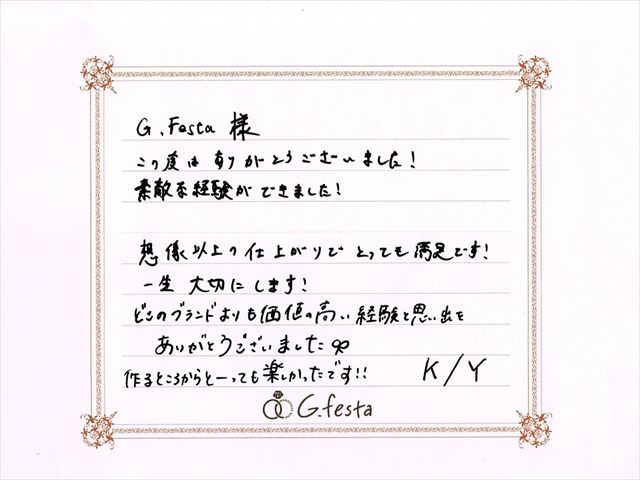 G.Festa 様
この度は ありがとうございました!
素敵な経験ができました!
想像以上の仕上がりで とっても 満足です!
一生 大切に します!
どこのブランドよりも価値の高い経験と思い出を
ありがとうございました
作るところからとーっても楽しかったです!! K/Y
G.festa